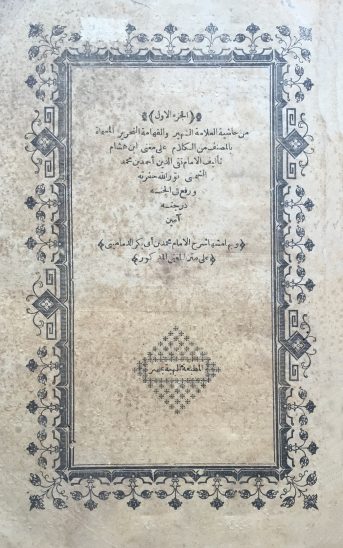 ﴿الجزء الاول﴾
من حاشية العلامة الشهير والفهامة النحرير المسماة
بالمنصف من الكلام على مغنى ابن هشام
تأليف الامام تقى الدين أحمد بن محمد
الشمنى نور الله حفرته
ورفع فى الجنة
درجته
آمين
﴿وبهامشها شرح الامام محمد بن أبى بكر الدمامينى﴾
﴿على متن المغنى المذكور﴾
المطبعة البهية بمصر